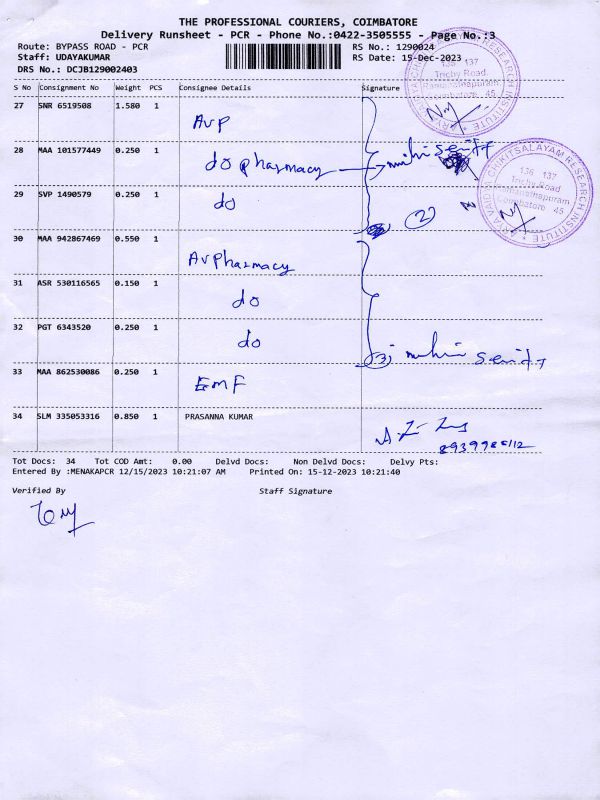 THE PROFESSIONAL COURIERS, COIMBATORE
Delivery Runsheet - PCR - Phone No.:0422-3505555 - Page No.:3
Route: BYPASS ROAD - PCR RS No.: 1290024
Staff: UDAYAKUMAR RS Date: 15-Dec-2023
DRS No.: DCJB129002403
ARYA VAIDYA CHIKITSALAYAM RESEARCH INSTITUTE
136 137
Trichy Road
Ramanathapuram
Coimbatore 45
S No Consignment No Weight PCS Consignee Details Signature
27 SNR 6519508 1.580 1 AVP
28 MAA 101577449 0.250 1 do pharmacy
29 SVP 1490579 0.250 1 do (2)
ARYA VAIDYA CHIKITSALAYAM RESEARCH INSTITUTE
136 137
Trichy Road
Ramanathapuram
Coimbatore 45
30 MAA 942867469 0.550 1 AvPharmacy
31 ASR 530116565 0.150 1 do
32 PGT 6343520 0.250 1 do (3)
33 MAA 862530086 0.250 1 EMF
34 SLM 335053316 0.850 1 PRASANNA KUMAR
Tot Docs: 34 Tot COD Amt: 0.00 Delvd Docs: Non Delvd Docs: Delvy Pts:
Entered By :MENAKAPCR 12/15/2023 10:21:07 AM Printed On: 15-12-2023 10:21:40
Verified By Staff Signature